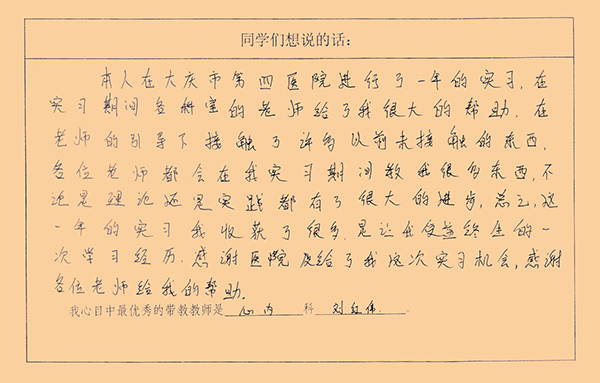 同学们想说的话:
本人在大庆市第四医院进行了一年的实习,在
实习期间各科室的老师给了我很大的帮助.在
老师的引导下接触了许多以前未接触的东西.
各位老师都会在我实习期间教我很多东西,不
论是理论还是实践都有了很大的进步,总之,这
一年的实习我收获了很多.是让我受益终生的一
次学习经历.感谢医院及给了我这次实习机会,感谢
各位老师给我的帮助.
我心目中最优秀的带教教师是 心内 科 刘红伟 。